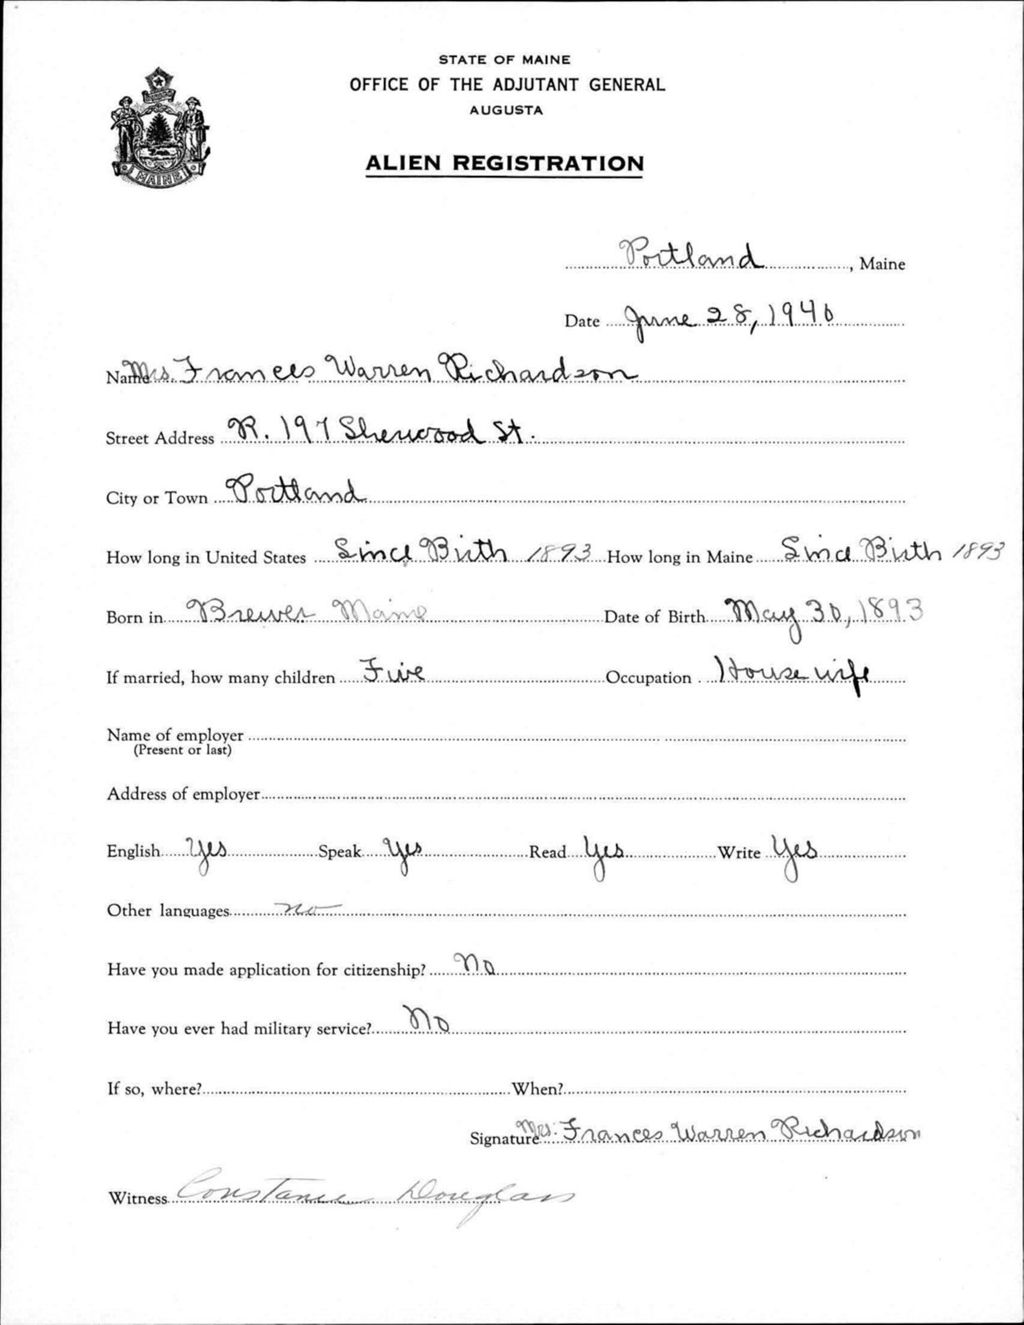 STATE OF MAINE
OFFICE OF THE ADJUTANT GENERAL
AUGUSTA
ALIEN REGISTRATION
MAINE
Portland, Maine
Date June 28, 1940
Name Mrs. Frances Warren Richardson
Street Address R. 197 Sherwood St.
City or Town Portland
How long in United States Since Birth 1893 How long in Maine Since Birth 1893
Born in Brewer Maine Date of Birth May 30, 1893
If married, how many children Five Occupation House wife
Name of employer
(Present or last)
Address of employer
English Yes Speak Yes Read Yes Write Yes
Other languages no
Have you made application for citizenship? No
Have you ever had military service? No
If so, where? When?
Signature Mrs. Frances Warren Richardson
Witness Constance Douglass